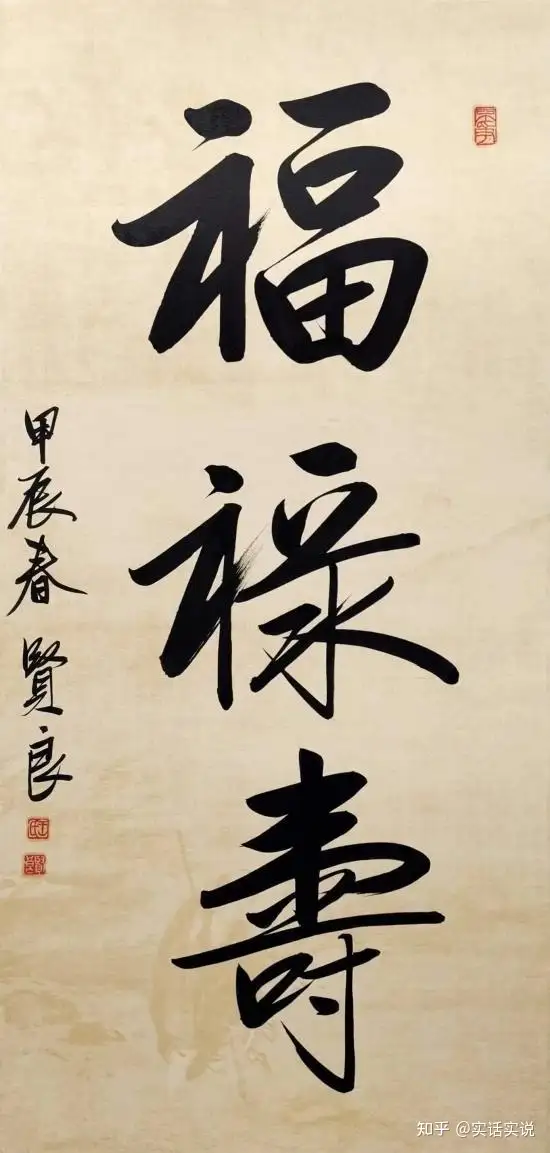 福
禄
壽
甲辰春 賢良
知乎 @实话实说